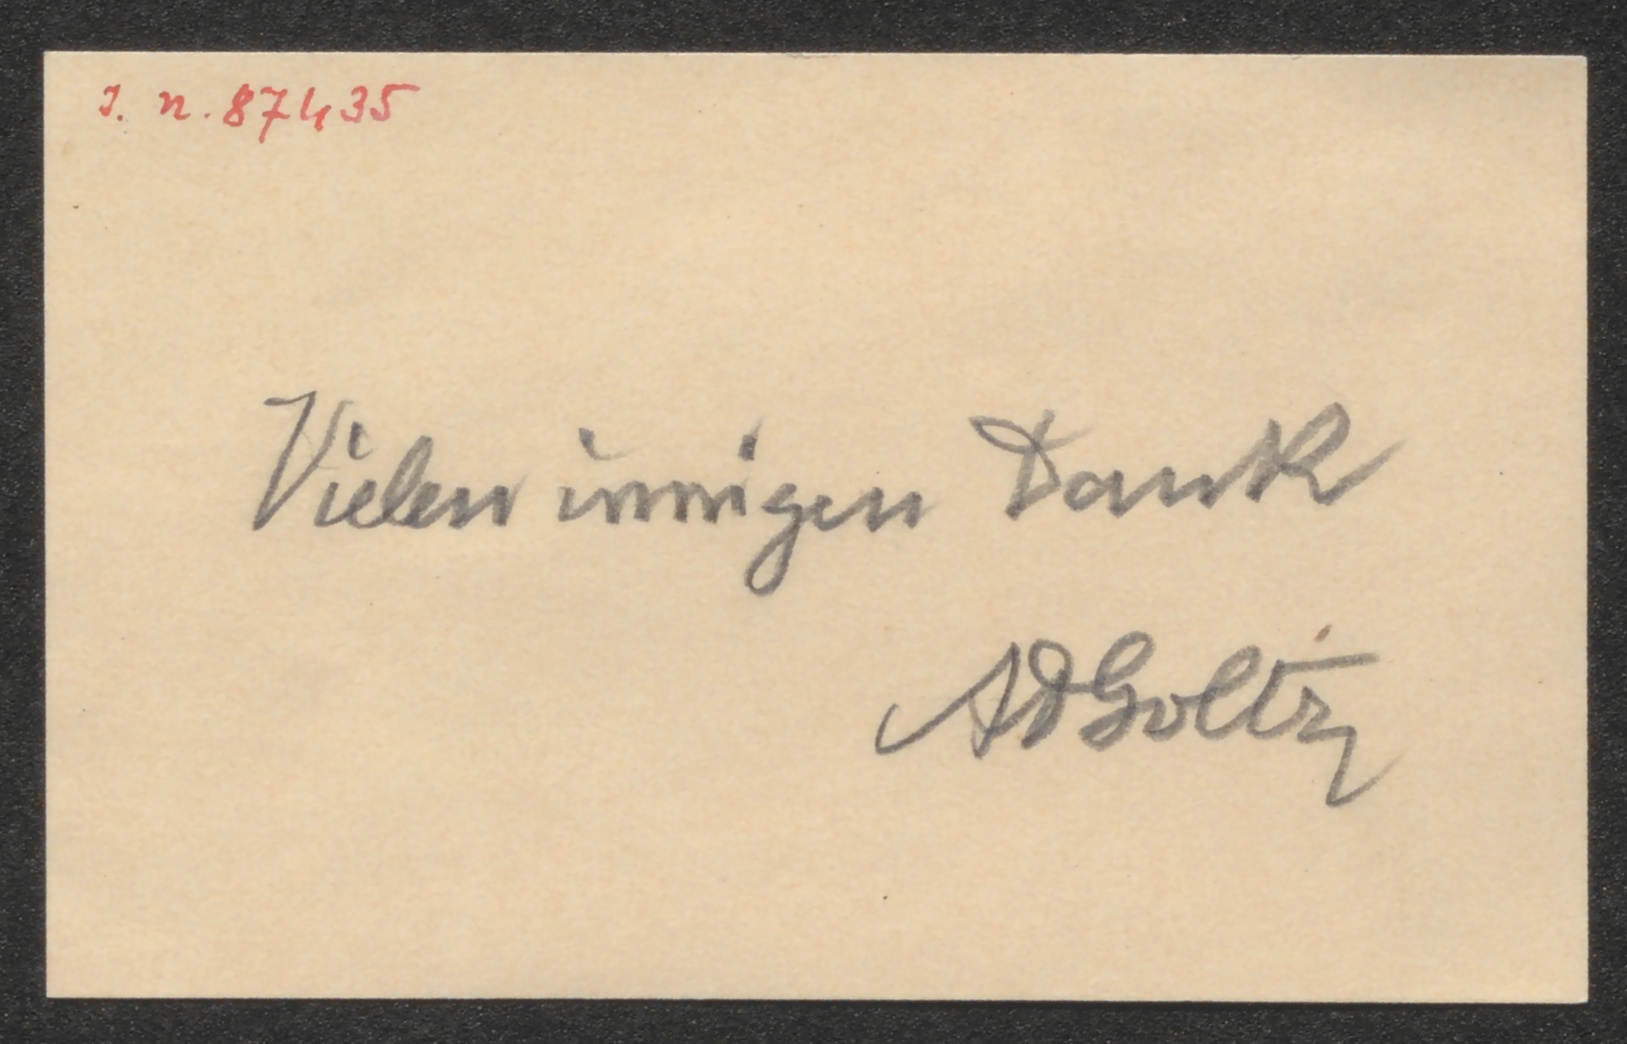 J. N. 87435
Vielen innigen Dank
ADGoltz